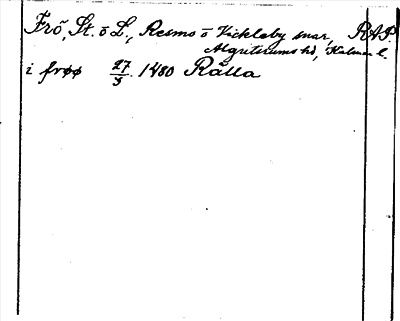 Frö, St. o L., Resmo o Vickleby snar, RAP.
Algutsrums hd, Kalmar l.
i frøø 27/3. 1480 Rälla